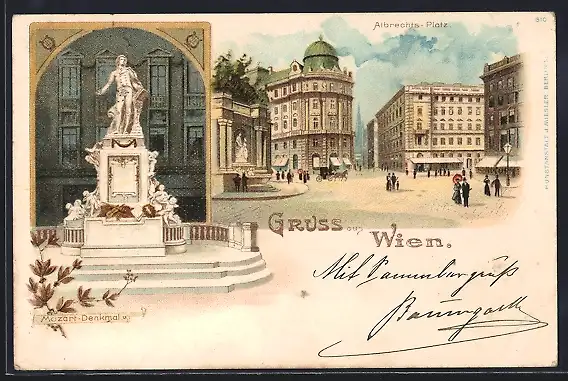 Albrechts-Platz.
810
KUNSTANSTALT J. MIESLER, BERLIN S.
Gruss aus
Wien.
Mozart-Denkmal
Mit
Baumgartl